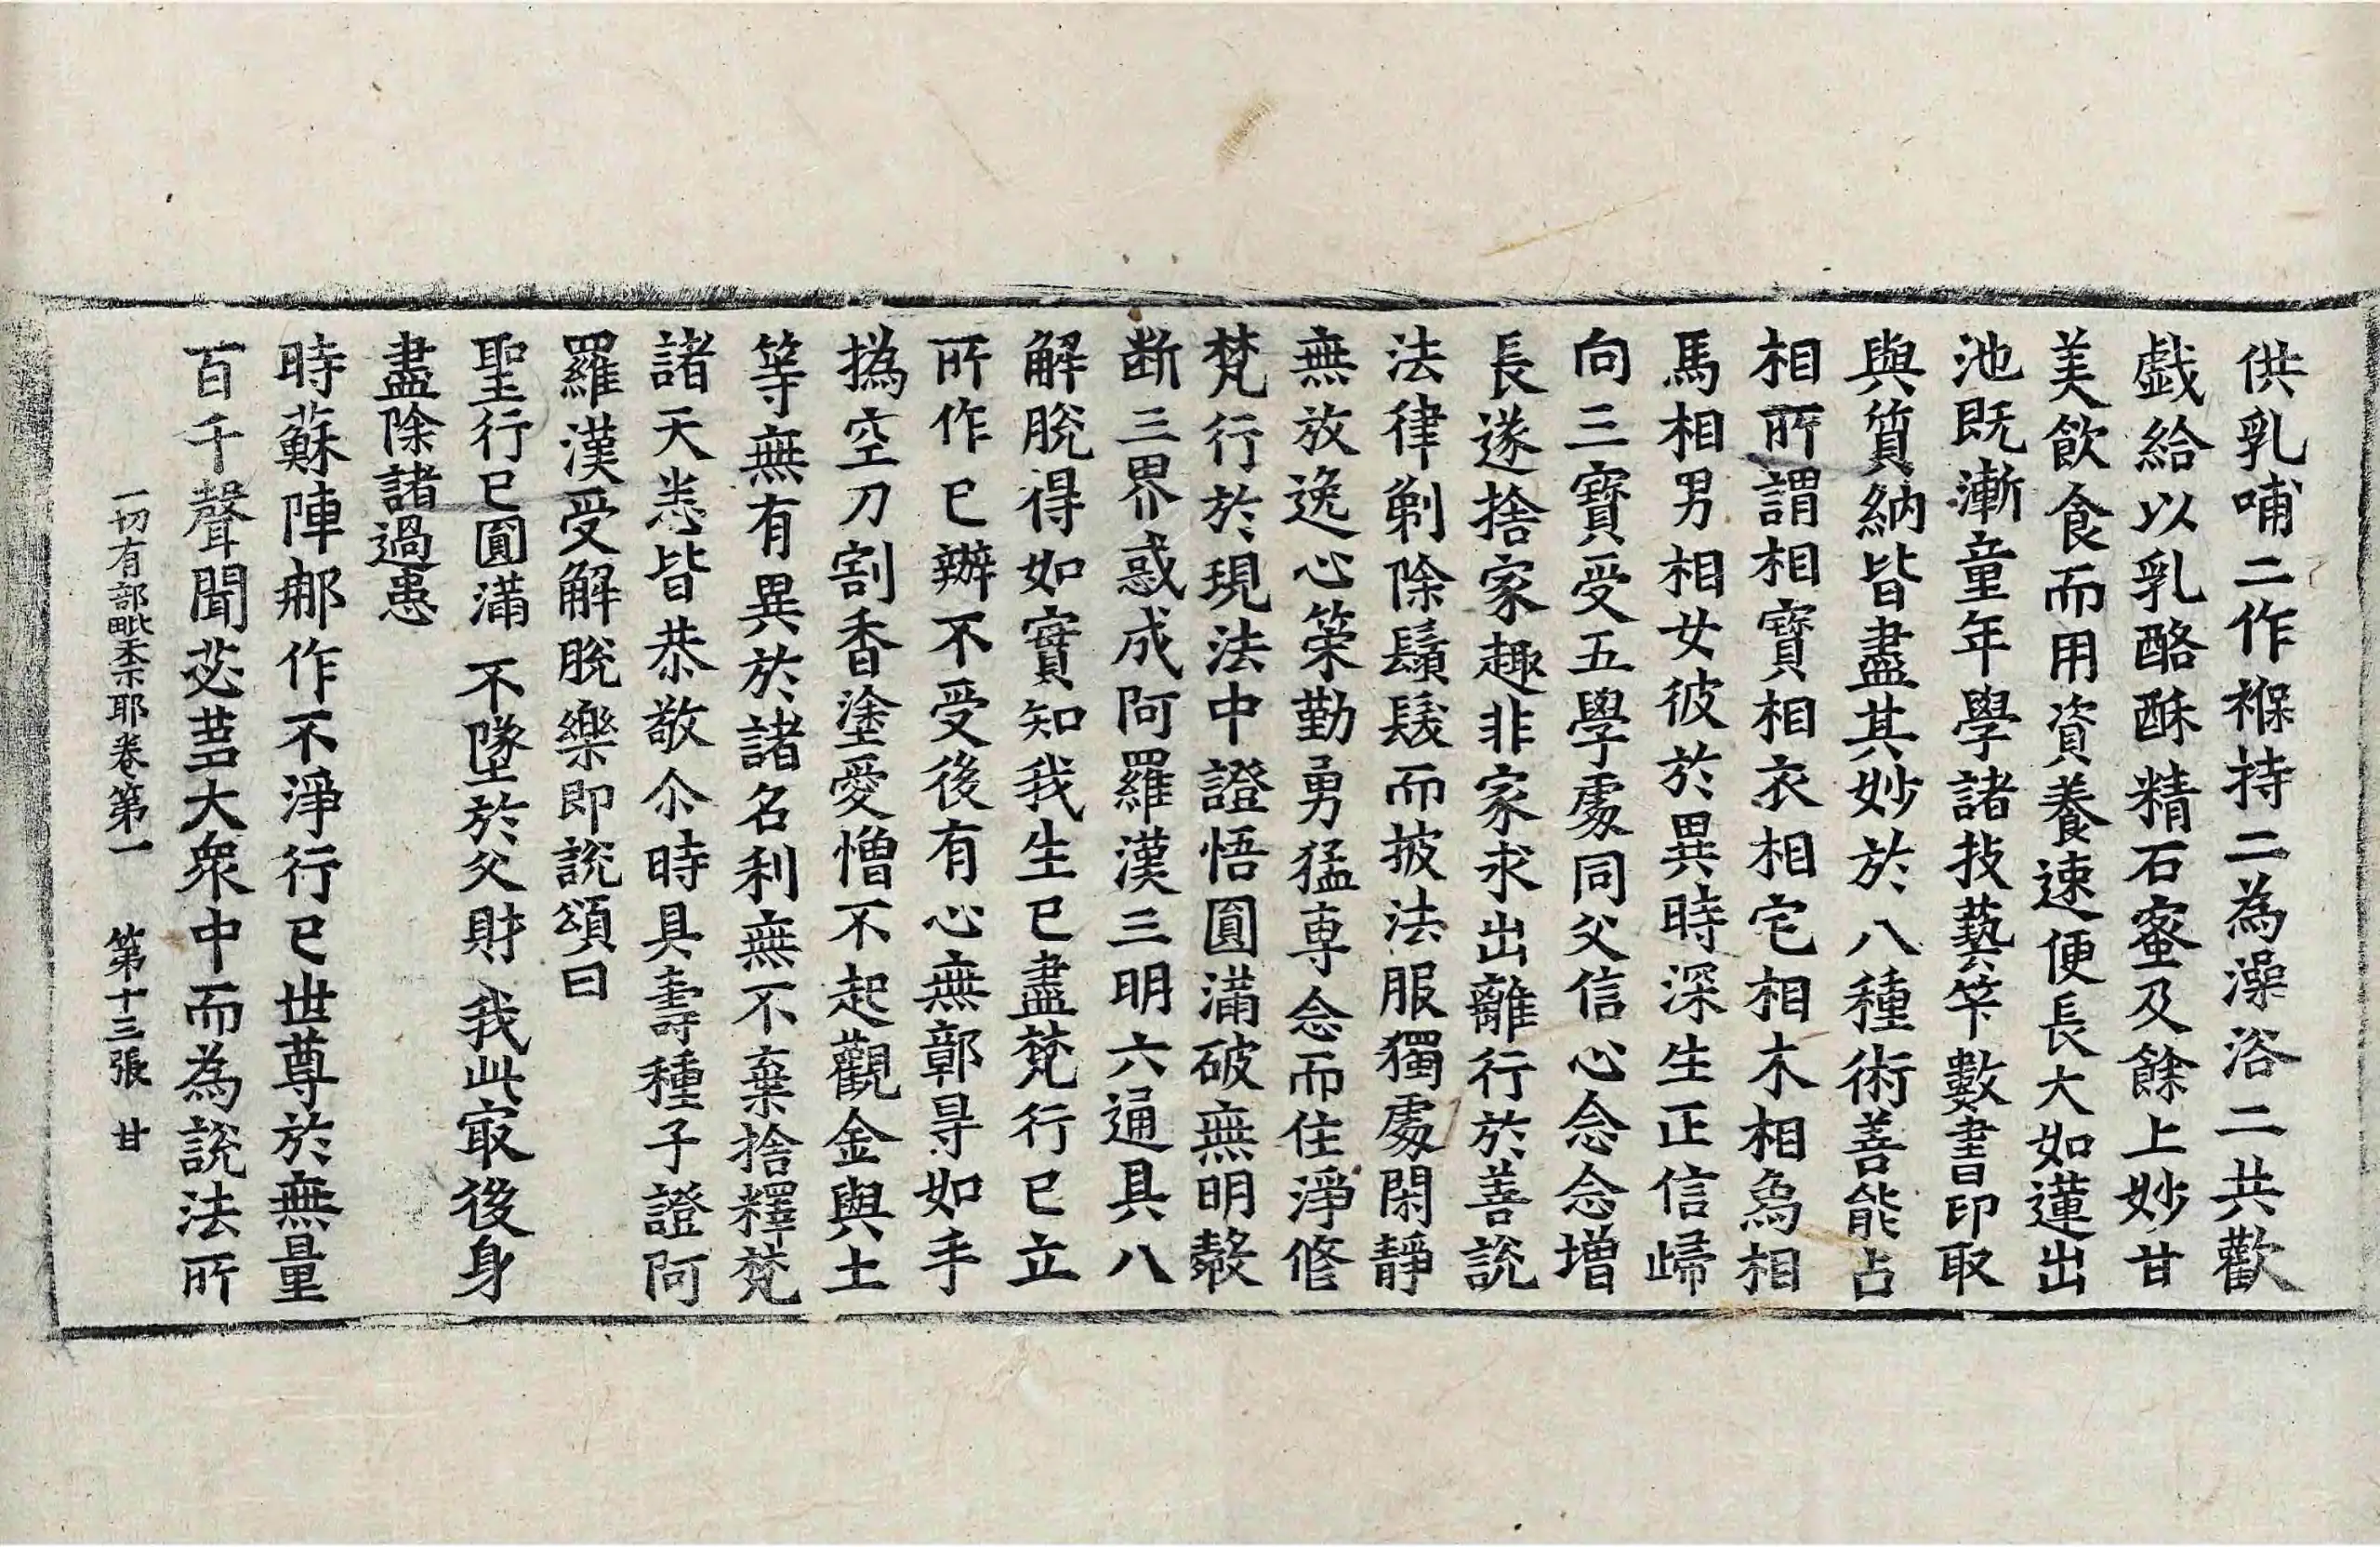 供乳哺二作褓持二為澡浴二共歡
戱給以乳酪酥精石蜜及餘上妙甘
美飲食而用資養速便長大如蓮出
池既漸童年學諸技藝笇數書印取
與質納皆盡其妙於八種術善能占
相所謂相寶相衣相宅相木相為相
馬相男相女彼於異時深生正信歸
向三寶受五學處同父信心念念增
長遂捨家趣非家求出離行於善說
法律剃除鬚髮而披法服獨處閑靜
無放逸心策勤勇猛專念而住淨修
梵行於現法中證悟圓滿破無明𣪊
断三界惑成阿羅漢三明六通具八
解脫得如實知我生已盡梵行已立
所作已辦不受後有心無鄣㝵如手
撝空刀割香塗愛憎不起觀金與土
等無有異於諸名利無不棄捨釋梵
諸天悉皆恭敬尒時具壽種子證阿
羅漢受解脫樂即說頌曰
聖行已圓滿 不墜於父財 我此㝡後身
盡除諸過患
時蘇陣那作不淨行已世尊於無量
百千聲聞苾芻大衆中而為說法所
一切有部毗柰耶卷第一 第十三張 甘